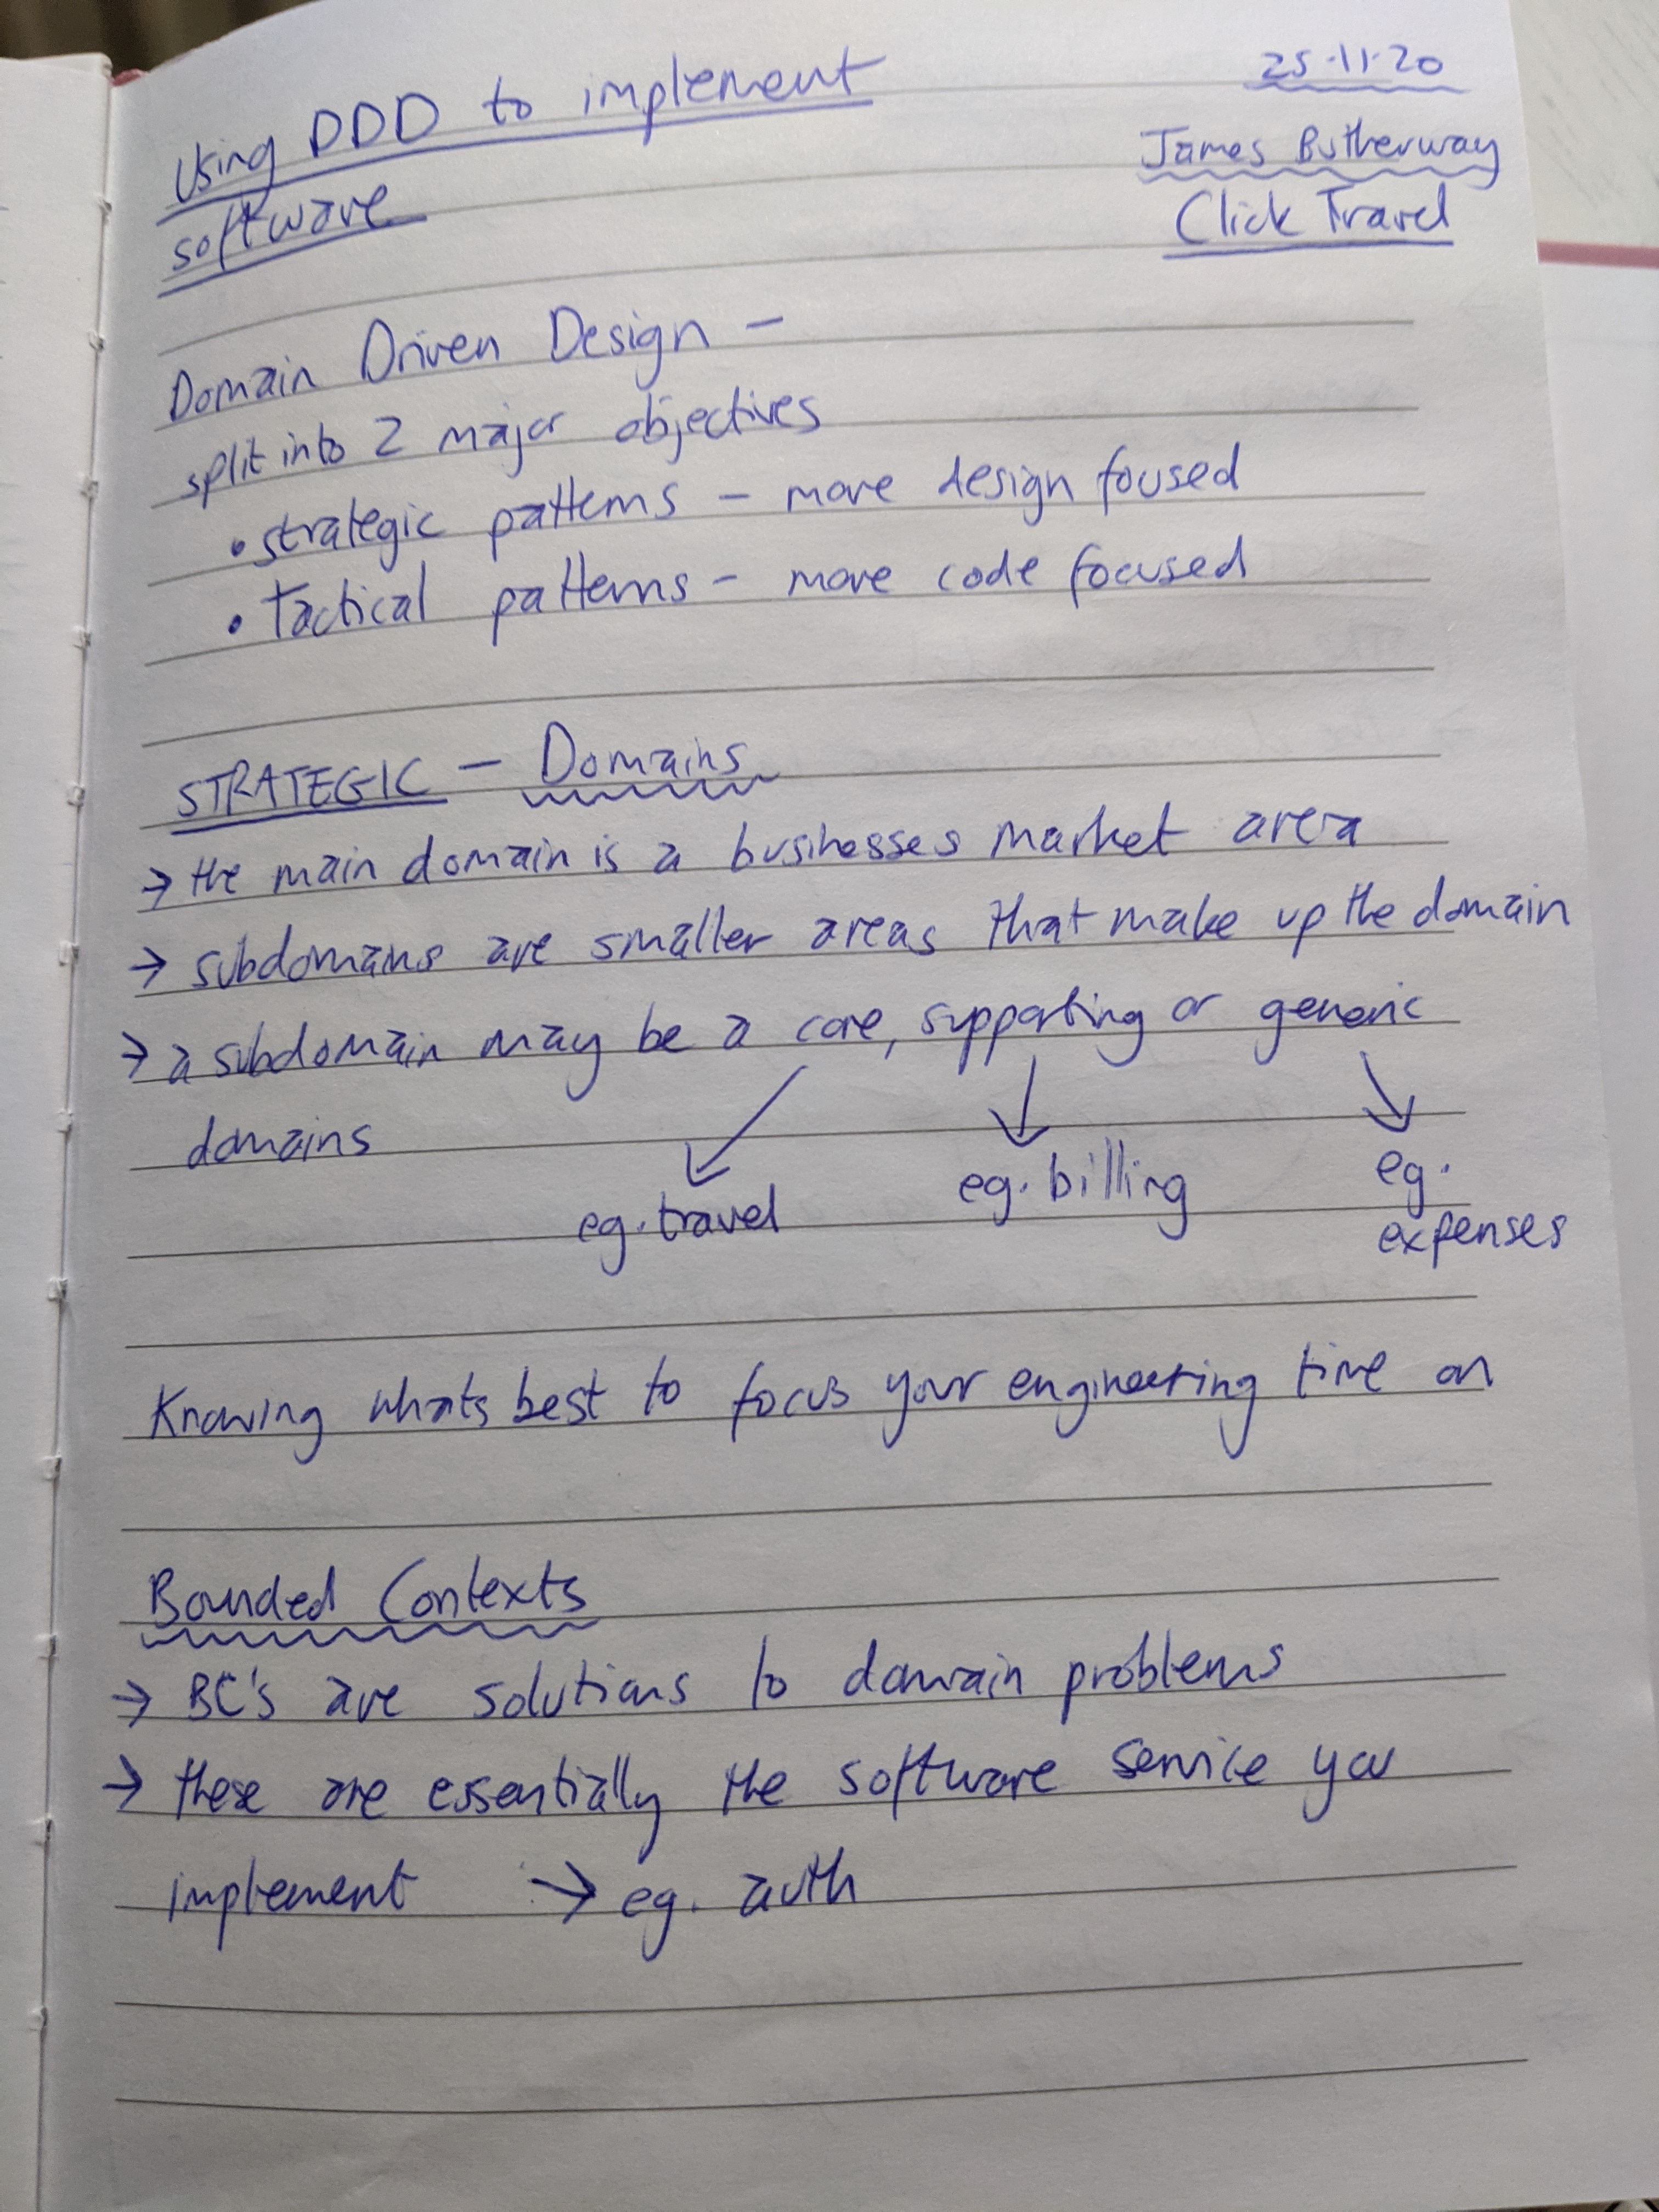 Using DDD to implement
software
25.11.20
James Butherway
Click Travel
Domain Driven Design –
split into 2 major objectives
• strategic patterns – more design foused
• Tactical patterns – more code focused
STRATEGIC – Domains
→ the main domain is a businesses market area
→ subdomains are smaller areas that make up the domain
→ a subdomain may be a core, supporting or generic
domains
eg. travel
eg. billing
eg.
expenses
Knowing whats best to focus your engineering time on
Bounded Contexts
→ BC's are solutions to domain problems
→ these are essentially the software service you
implement → eg. auth